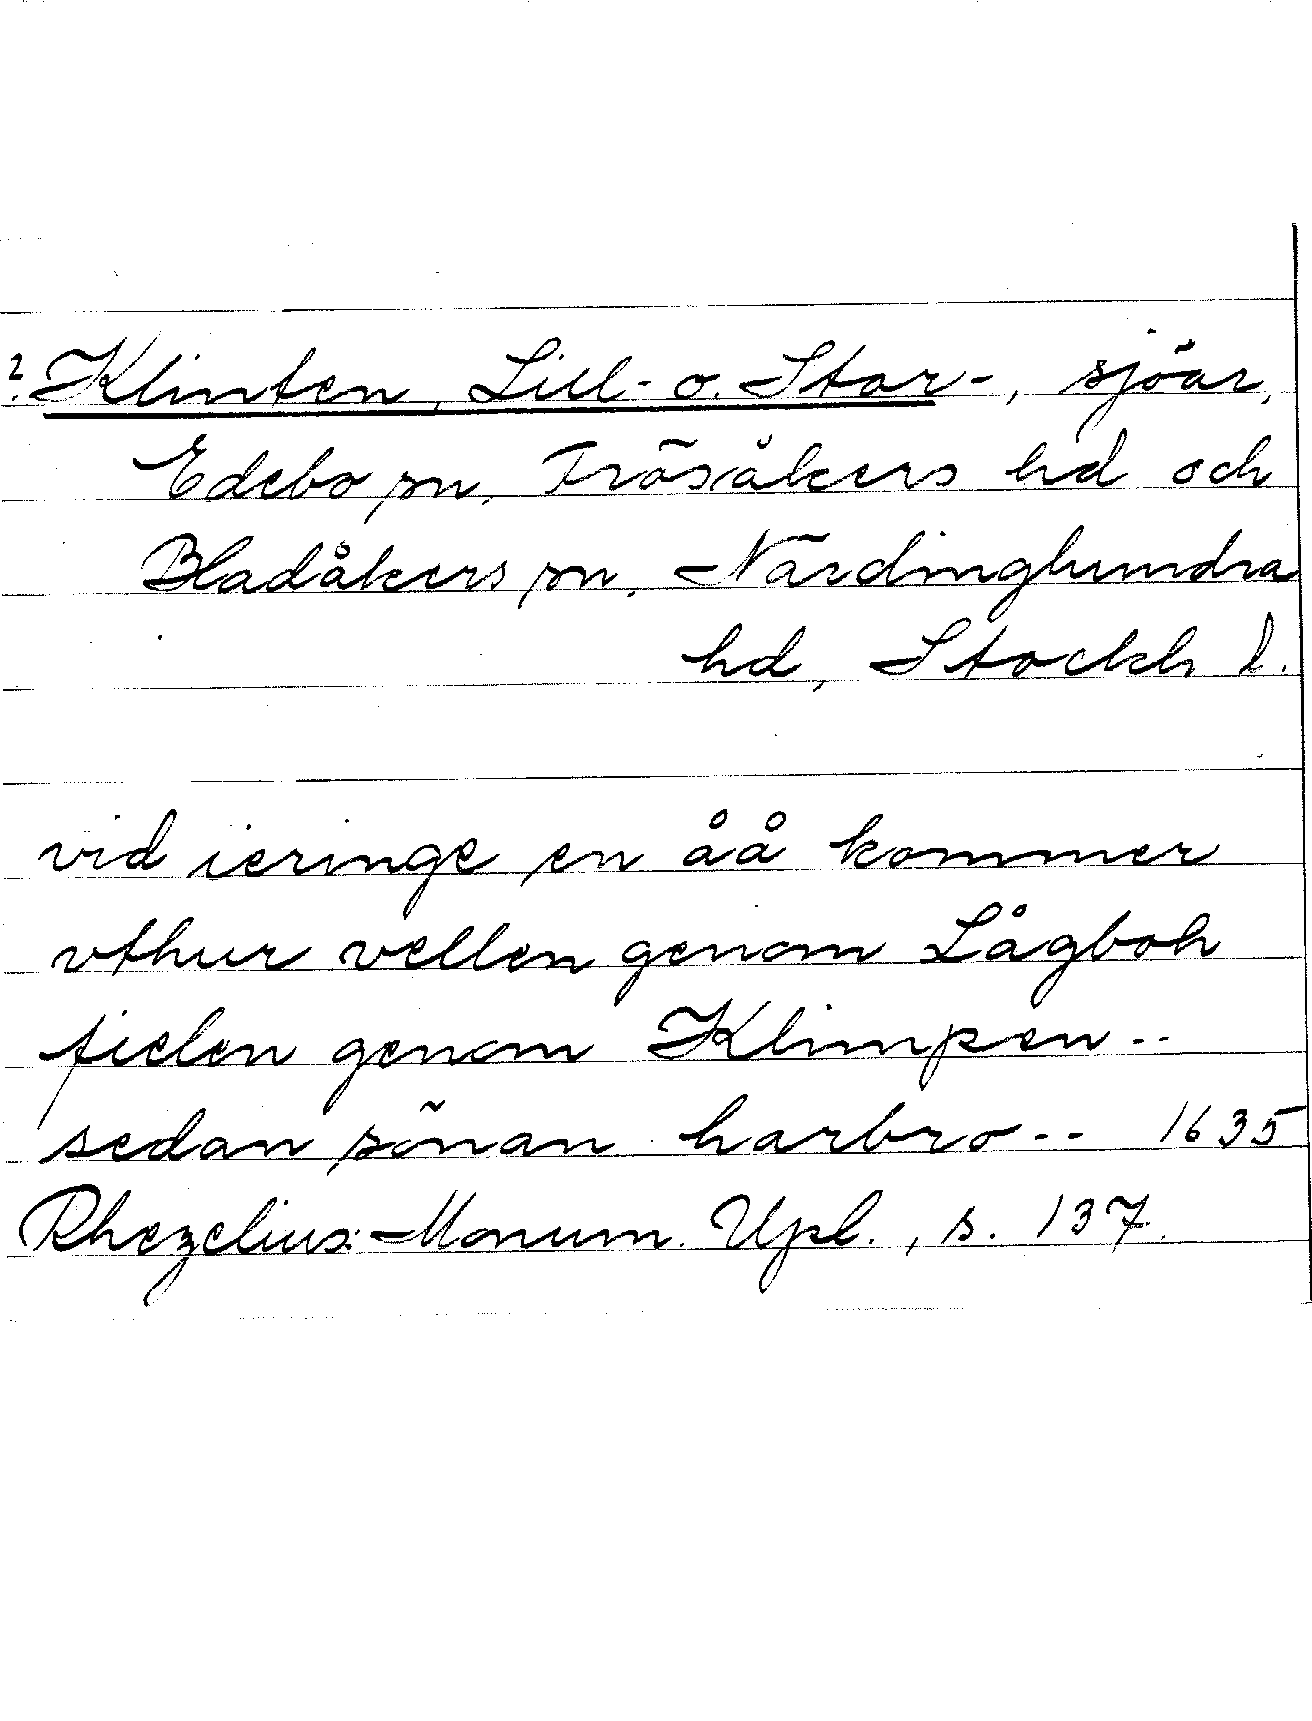 ? Klinten, Lill- o. Stor-, sjöar,
Edebo sn, Frösåkers hd och
Bladåkers sn, Närdinghundra
hd, Stockh l.
vid ieringe en åå kommer
vthur vellen genom Lågboh
fielen genom Klimpen--
sedan sönan harbro-- 1635
Rhezelius: Monum. Upl., s. 137.